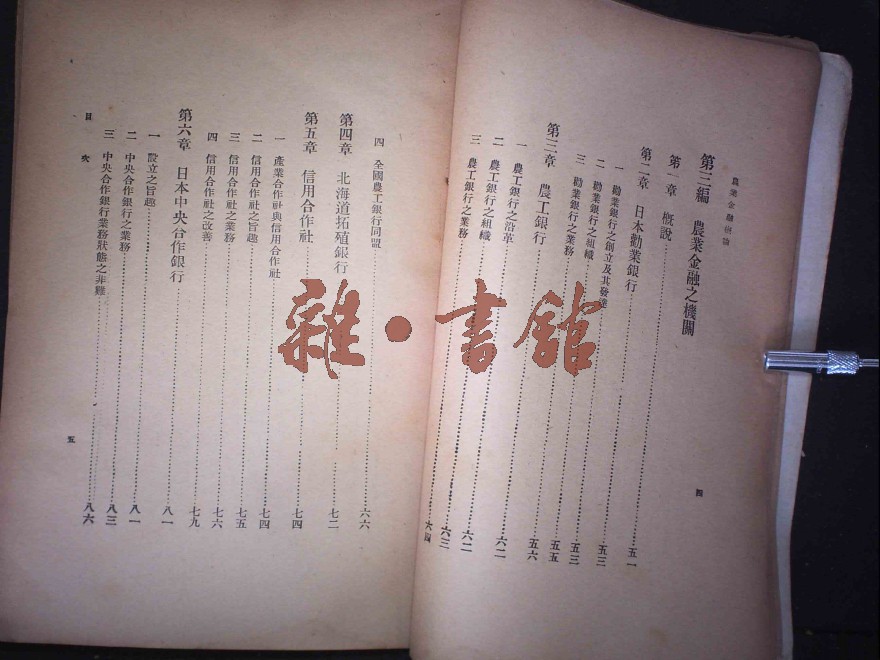 農業金融槪論
第三編 農業金融之機關
第一章 槪說……五一
第二章 日本勸業銀行……五三
一 勸業銀行之創立及其發達……五三
二 勸業銀行之組織……五五
三 勸業銀行之業務……五六
第三章 農工銀行……六二
一 農工銀行之沿革……六二
二 農工銀行之組織……六三
三 農工銀行之業務……六四
四
四 全國農工銀行同盟……六六
第四章 北海道拓殖銀行……七二
第五章 信用合作社……七四
一 產業合作社與信用合作社……七四
二 信用合作社之旨趣……七五
三 信用合作社之業務……七六
四 信用合作社之改善……七九
第六章 日本中央合作銀行……八一
一 設立之旨趣……八一
二 中央合作銀行之業務……八三
三 中央合作銀行業務狀態之非難……八六
目次
五
雜•書館